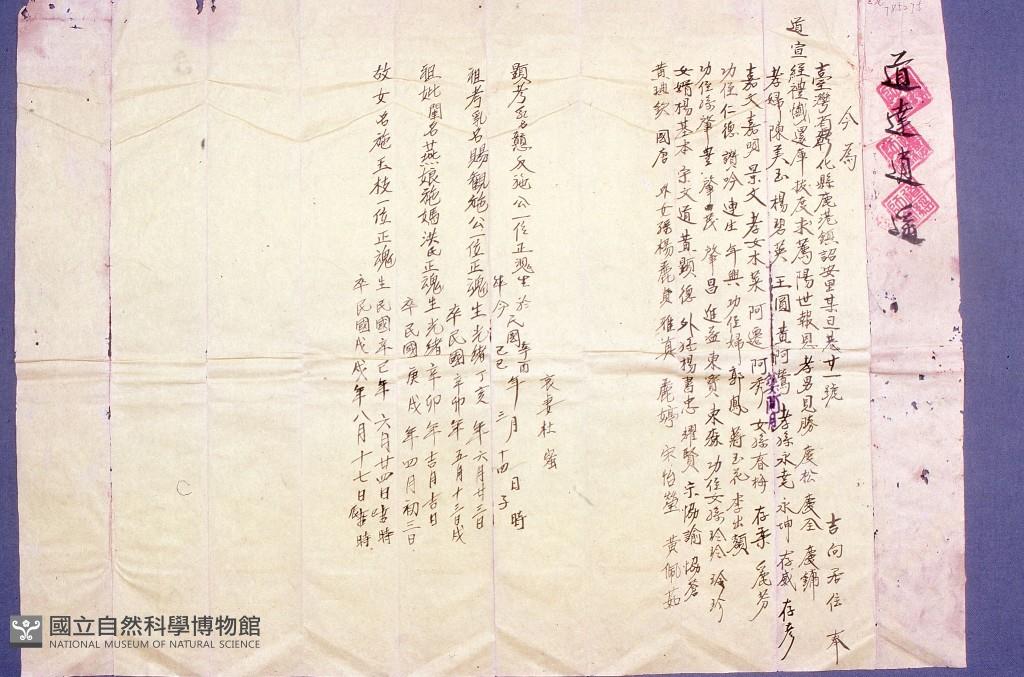 道達逍遥
今為
臺灣省彰化縣鹿港鎮詔安里某旦巷廿一號 吉向居住 奉
道宣經禮懺還庫拔度求薦陽世報恩孝男見勝 慶松 慶全 慶鏞
孝婦陳美玉 楊碧英 王圓 黃阿鶯 孝孫永堯 永坤 存威 存彥
嘉文 嘉明 景文 孝女水英 阿邊 阿秀 女孫春梅 存柔 麗芳
功侄仁德 讚吟 連生 年興 功侄婦郭鳳 蔣玉花 李出顏
功侄孫肇豊 肇民 肇昌 進益 東寶 東霖 功侄女孫玲玲 玲珍
女婿楊基本 宗文道 黃顯德 外孫楊書忠 耀賢 宗協諭 協蒼
黃琪欽 國唐 外女孫楊麗貞 雅真 麗婷 宋怡瑩 黃佩茹
哀妻杜蜜
顯考乳名顏反施公一位正魂生於民國辛酉年 三月十四日子時
年今 己巳
祖考乳名賜觀施公一位正魂生光緒丁亥年六月廿三日
卒民國辛卯年五月十三日戌
祖妣閨名燕娘施媽洪氏正魂生光緒辛卯年吉月吉日
卒民國庚戌年四月初三日
故女名施玉枝一位正魂生民國辛巳年六月廿四日吉時
卒民國戊戌年八月十七日時
國立自然科學博物館
NATIONAL MUSEUM OF NATURAL SCIENCE